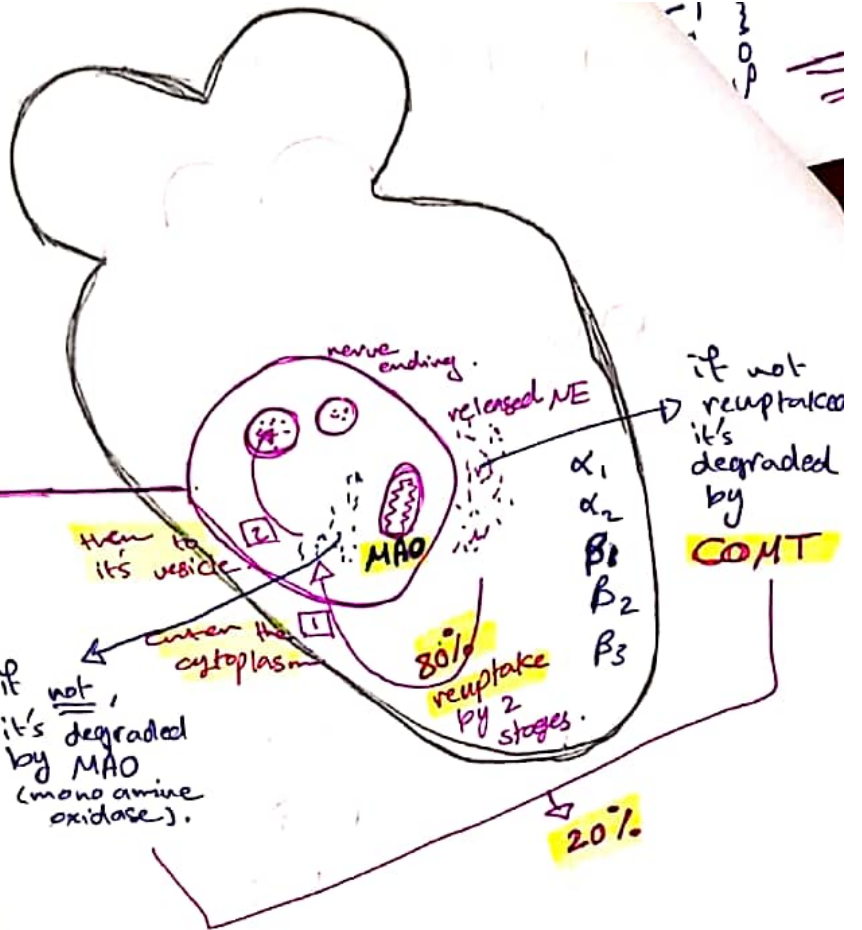 nerve
ending.
released NE
if not
reuptaked
it's
degraded
by
COMT
α1
α2
β1
β2
β3
2
then to
it's vesicle
MAO
1
enter the
cytoplasm
80%
reuptake
by 2
stages.
if not,
it's degraded
by MAO
(mono amine
oxidase).
20%